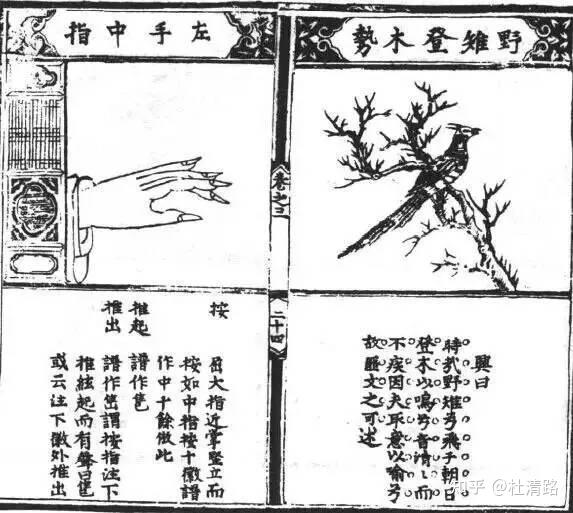 野雉登木勢
興曰
時哉野雉兮飛于朝日
登木以鳴兮音清〻而
不疾因夫取意以喻兮
故匪文之可述
卷之
二十四
左手中指
按
大指近掌豎立而
按如中指按十徽譜
作中十餘倣此
推起
譜作
推出
譜作謂按指注下
推絃起而有聲曰
或云注下徽外推出
知乎 @杜清路